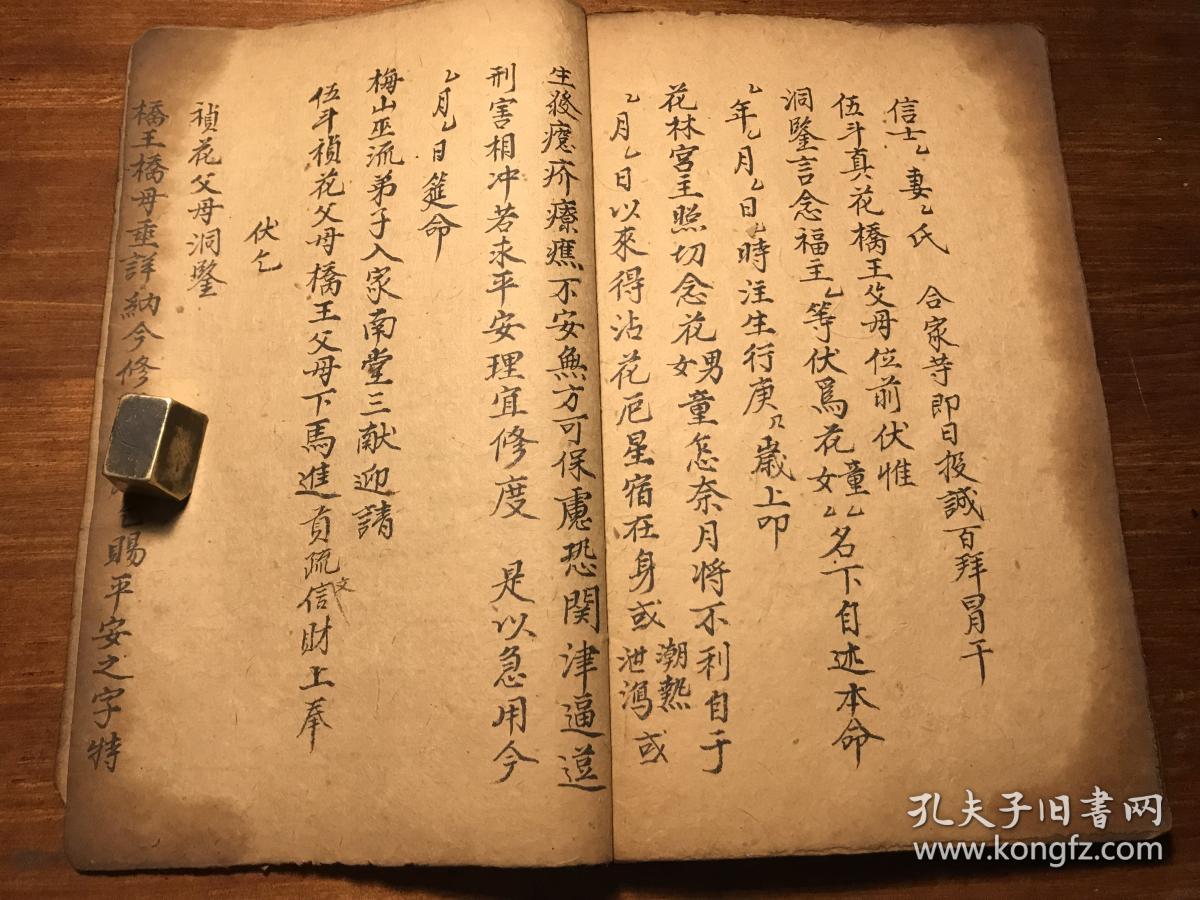 信士乙妻乙氏 合家等即日投誠百拜冒干
伍斗真花橋王父母位前伏惟
洞鑒言念福主乙等伏爲花童女乙乙名下自述本命
乙年乙月乙日乙時注生行庚 歲上叩
花林宮主照切念花男女童怎奈月將不利自于
乙月乙日以來得沾花厄星宿在身或潮熱泄瀉或
生發 疥療瘧不安無方可保慮恐関津逼逆
刑害相冲若求平安理宜修度 是以急用今
乙月乙日筵命
梅山巫流弟子入家南堂三献迎請
伍斗禎花父母橋王父母下馬進貢疏文信財上奉
伏乞
禎花父母洞鑒
橋王橋母垂詳納今修 賜平安之字特
孔夫子旧书网
www.kongfz.com